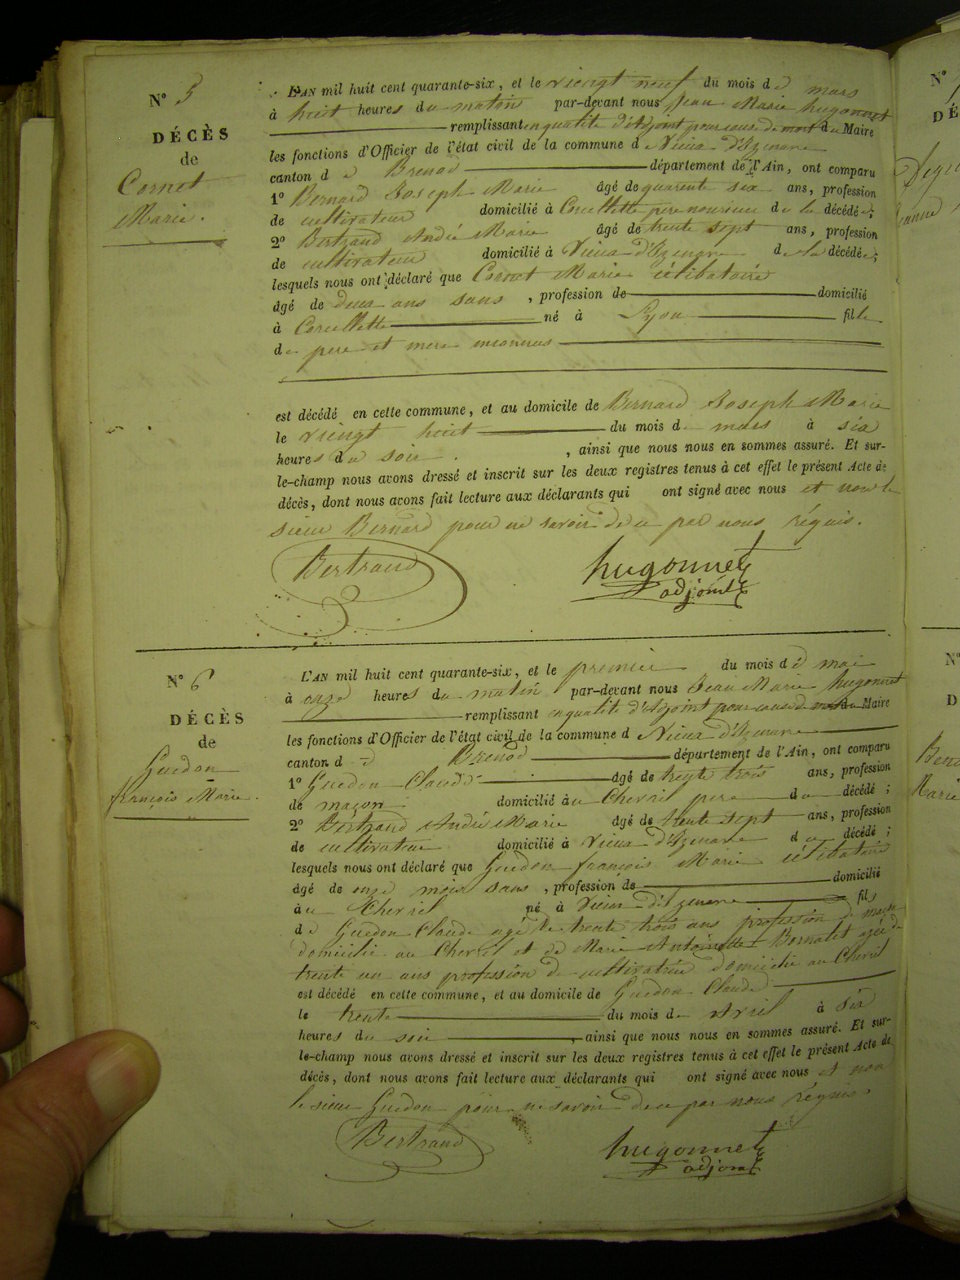 N° 5
DÉCÈS
de
Cornet
Marie.
L'AN mil huit cent quarante-six, et le viengt neuf du mois de mars
à huit heures du matin par-devant nous Jean Marie hugonnet
remplissant en qualité d'Adjoint pour cause de mort du Maire
les fonctions d'Officier de l'état civil de la commune d Vieux d'Izenave
canton d e Brenod département de l'Ain, ont comparu
1° Bernard Joseph Marie âgé de quarente six ans, profession
de cultivateur domicilié à Corcellette pere nouricier de la décédée;
2° Bertrand André Marie âgé de trente sept ans, profession
de cultivateur domicilié à Vieux d'Izenave de la décédée;
lesquels nous ont déclaré que Cornet Marie célibataire
âgé de deux ans sans , profession de domicilié
à Corcellette né à Lyon fille
de pere et mere inconnus
est décédé en cette commune, et au domicile de Bernard Joseph Marie
le viengt huit du mois de mars à six
heures du soir , ainsi que nous nous en sommes assuré. Et sur-
le-champ nous avons dressé et inscrit sur les deux registres tenus à cet effet le présent Acte de
décès, dont nous avons fait lecture aux déclarants qui ont signé avec nous et non le
sieur Bernard pour ne savoir de ce par nous réquis.
Bertrand
hugonnet
adjoint
N° 6
DÉCÈS
de
Guedon
françois Marie.
L'AN mil huit cent quarante-six, et le premier du mois de mai
à onze heures du matin par-devant nous Jean Marie hugonnet
remplissant en qualité d'Adjoint pour cause de mort du Maire
les fonctions d'Officier de l'état civil de la commune d Vieux d'Izenave
canton d e Brenod département de l'Ain, ont comparu
1° Guedon Claude âgé de trente trois ans, profession
de maçon domicilié au Chevril pere du décédé;
2° Bertrand André Marie âgé de trente sept ans, profession
de cultivateur domicilié à Vieux d'Izenave du décédé;
lesquels nous ont déclaré que Guedon françois Marie célibataire
âgé de onze mois sans , profession de domicilié
au Chevril né à Vieux d'Izenave fils
de Guedon Claude agé de trente trois ans profession de maçon
domicilié au Chevril et de Marie Antoinette Bornatet agée de
trente un ans profession de cultivatrice domicilié au Chevril
est décédé en cette commune, et au domicile de Guedon Claude
le trente du mois de Avril à six
heures du soir , ainsi que nous nous en sommes assuré. Et sur-
le-champ nous avons dressé et inscrit sur les deux registres tenus à cet effet le présent Acte de
décès, dont nous avons fait lecture aux déclarants qui ont signé avec nous et non
le sieur Guedon pour ne savoir de ce par nous réquis.
Bertrand
hugonnet
adjoint